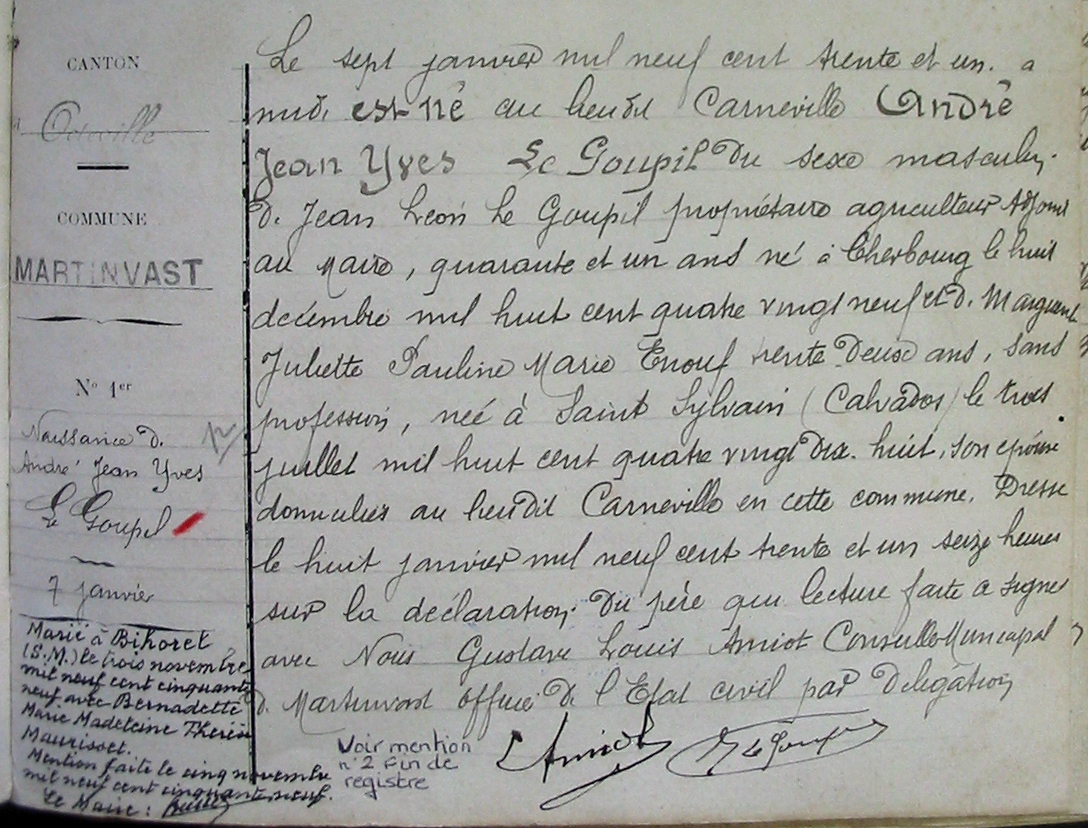 CANTON
Octeville
COMMUNE
MARTINVAST
N° 1er
Naissance de
André Jean Yves
Le Goupil
7 janvier
Marié à Bihorel
(S.M.) le trois novembre
mil neuf cent cinquante
neuf avec Bernadette
Marie Madeleine Thérèse
Maurisset.
Mention faite le cinq novembre
mil neuf cent cinquante neuf.
Le Maire :
Le sept janvier mil neuf cent trente et un. a
midi est né au lieudit Carneville André
Jean Yves Le Goupil du sexe masculin.
de Jean Léon Le Goupil propriétaire agriculteur Adjoint
au Maire, quarante et un ans né à Cherbourg le huit
décembre mil huit cent quatre vingt neuf et de Marguerite
Juliette Pauline Marie Enouf trente deux ans, sans
profession, née à Saint Sylvain (Calvados) le trois
juillet mil huit cent quatre vingt dix. huit, son épouse
domiciliés au lieudit Carneville en cette commune. Dressé
le huit janvier mil neuf cent trente et un seize heures
sur la déclaration du père qui lecture faite a signé
avec Nous Gustave Louis Amiot Conseiller Municipal
de Martinvast officier de l'Etat civil par Délégation
Voir mention
n°2 Fin de
registre
L Amiot
J Le Goupil